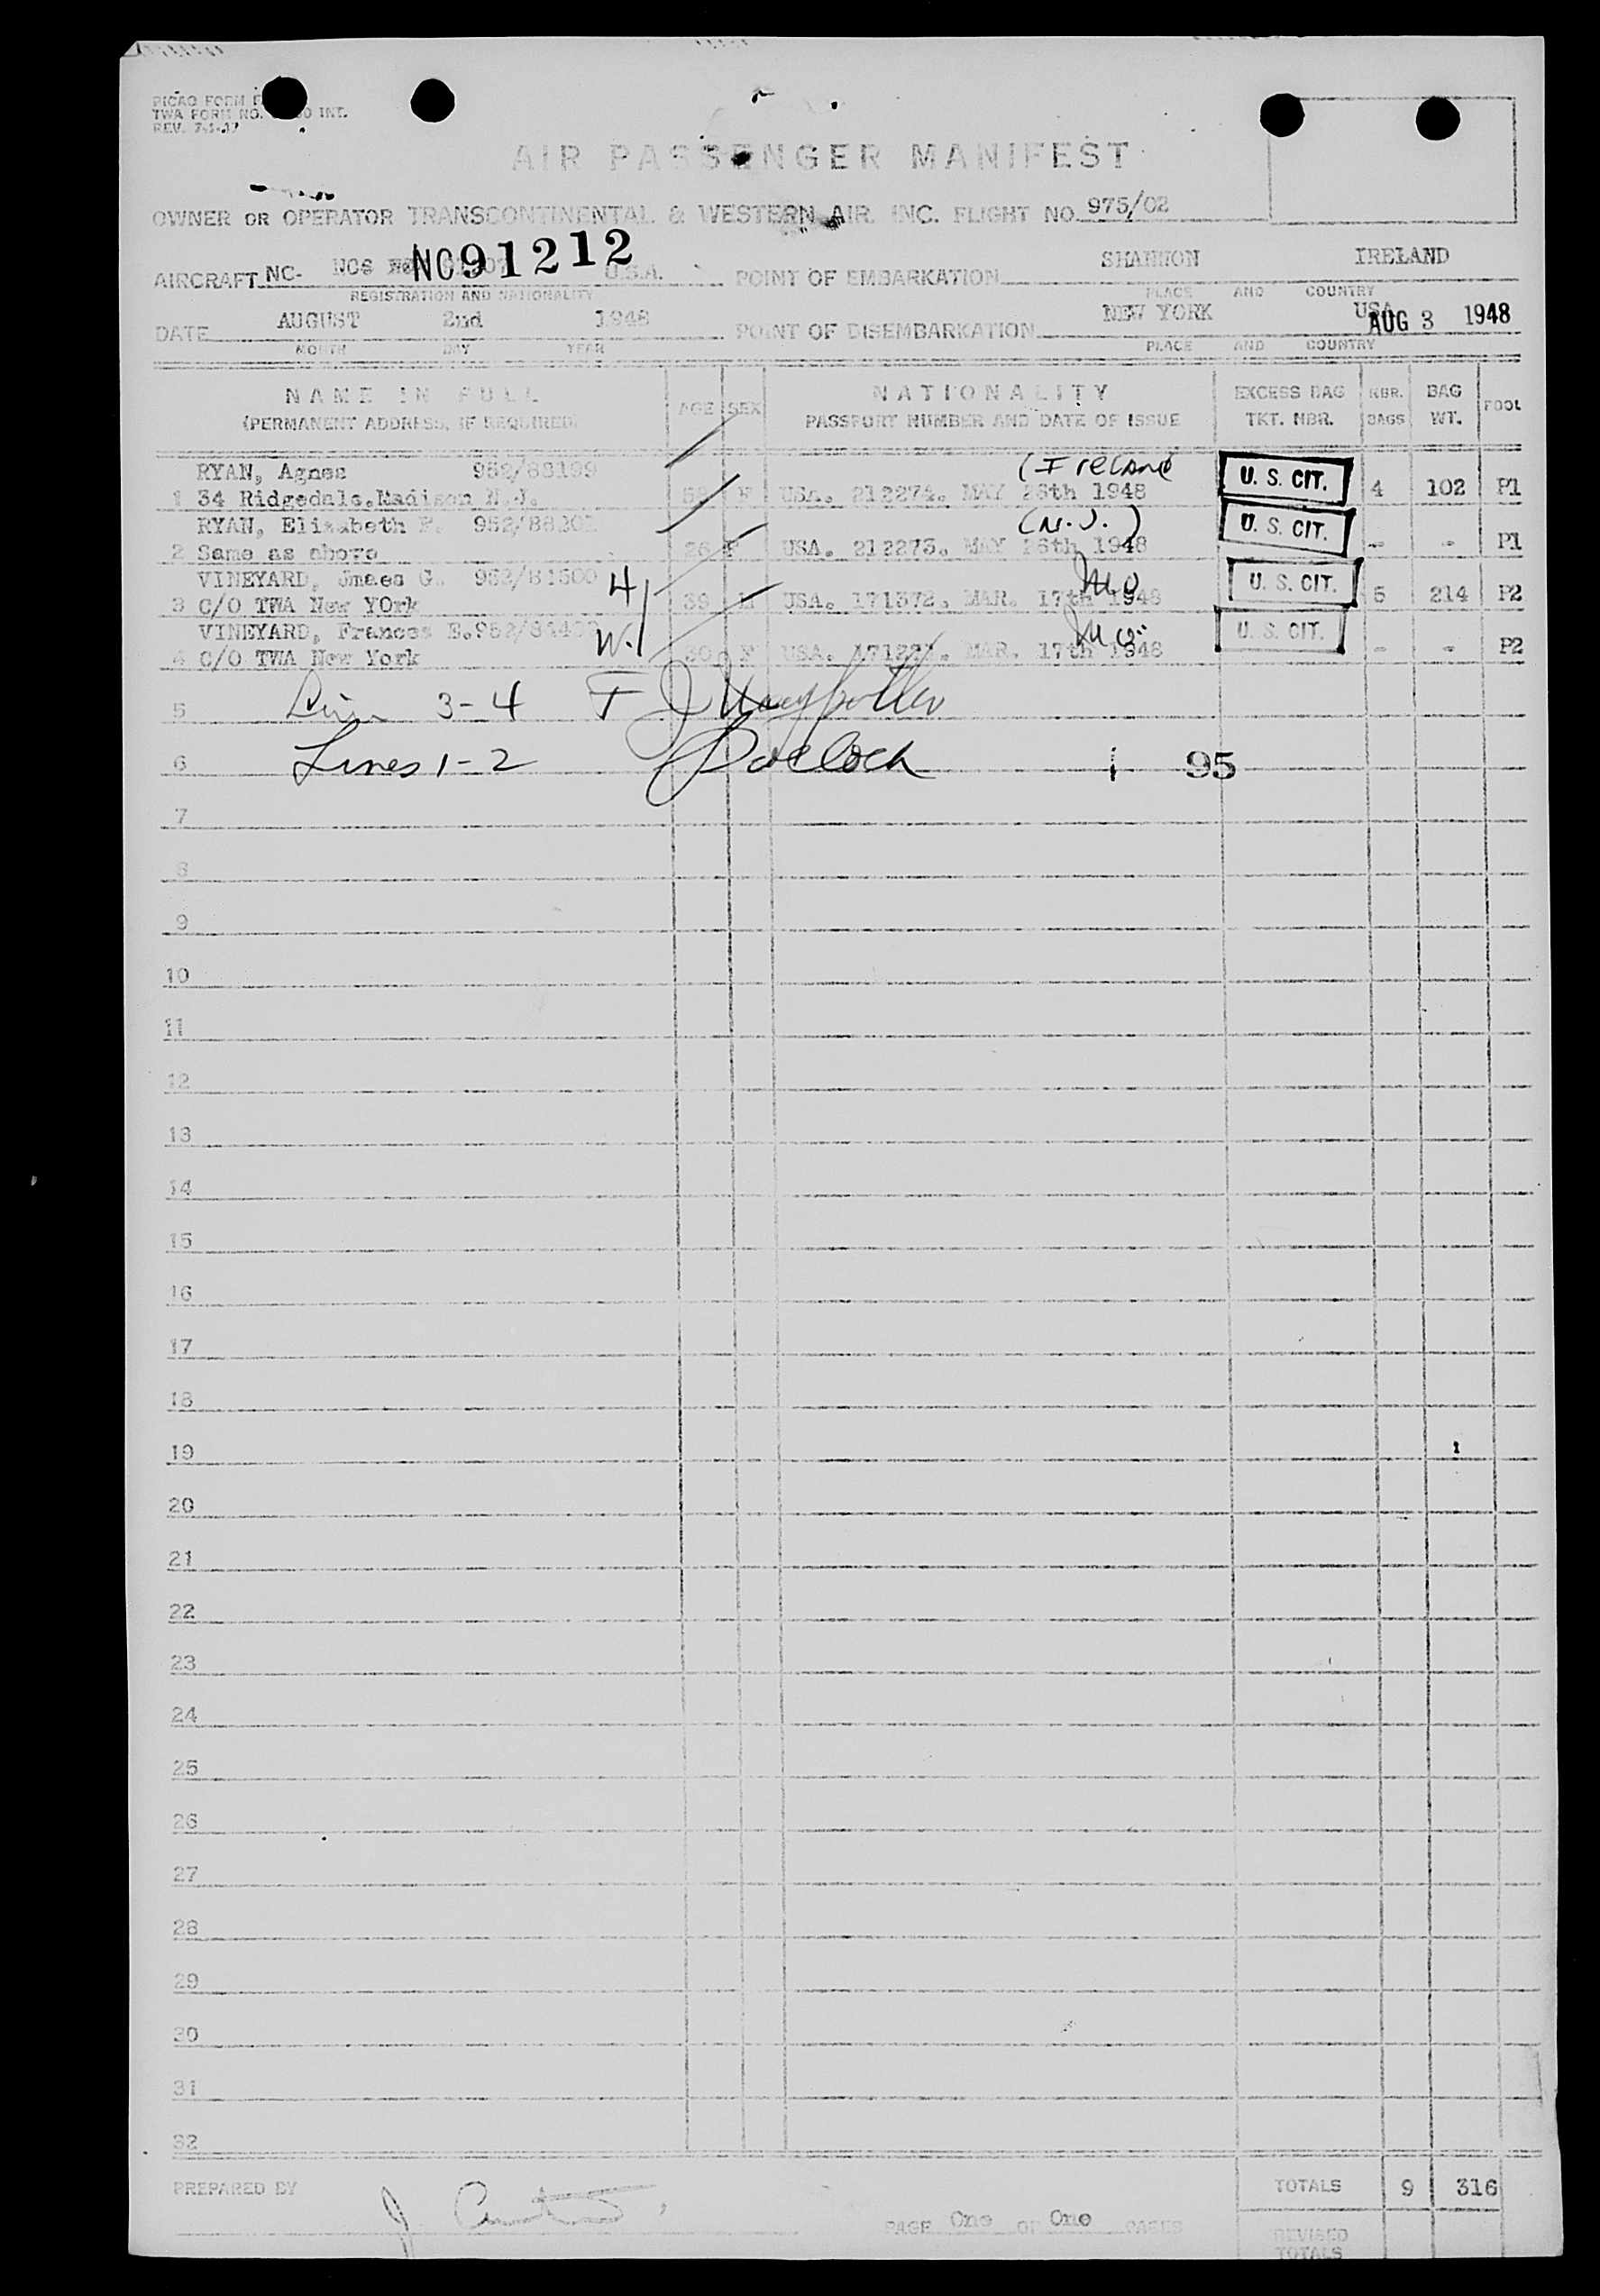 PICAO FORM
TWA FORM NO. INT.
REV.
AIR PASSENGER MANIFEST
OWNER OR OPERATOR TRANSCONTINENTAL & WESTERN AIR. INC. FLIGHT NO. 975/02
AIRCRAFT NC- NC91212 U.S.A. POINT OF EMBARKATION SHANNON IRELAND
REGISTRATION AND NATIONALITY PLACE AND COUNTRY
DATE AUGUST 2nd 1948 POINT OF DISEMBARKATION NEW YORK USA AUG 3 1948
MONTH DAY YEAR PLACE AND COUNTRY
NAME IN FULL AGE SEX NATIONALITY EXCESS BAG NBR. BAG POOL
(PERMANENT ADDRESS, IF REQUIRED) PASSPORT NUMBER AND DATE OF ISSUE TKT. NBR. BAGS WT.
RYAN, Agnes 952/88199 (Ireland U. S. CIT.
1 34 Ridgedale.Madison N.J. F USA. 212274. MAY 26th 1948 4 102 P1
RYAN, Elizabeth (N.J.) U. S. CIT.
2 Same as above 26 F USA. 212273. MAY 26th 1948 - - P1
VINEYARD, Jmaes G. 952/ H Mo U. S. CIT.
3 C/O TWA New YOrk 39 M USA. 171372. MAR. 17th 1948 5 214 P2
VINEYARD, Frances E. W. Mo. U. S. CIT.
4 C/O TWA New York 30 F USA. MAR. 17th 1948 - - P2
5 3-4
6 Lines 1-2 95
7
8
9
10
11
12
13
14
15
16
17
18
19
20
21
22
23
24
25
26
27
28
29
30
31
32
PREPARED BY TOTALS 9 316
PAGE One OF One PAGES
REVISED
TOTALS